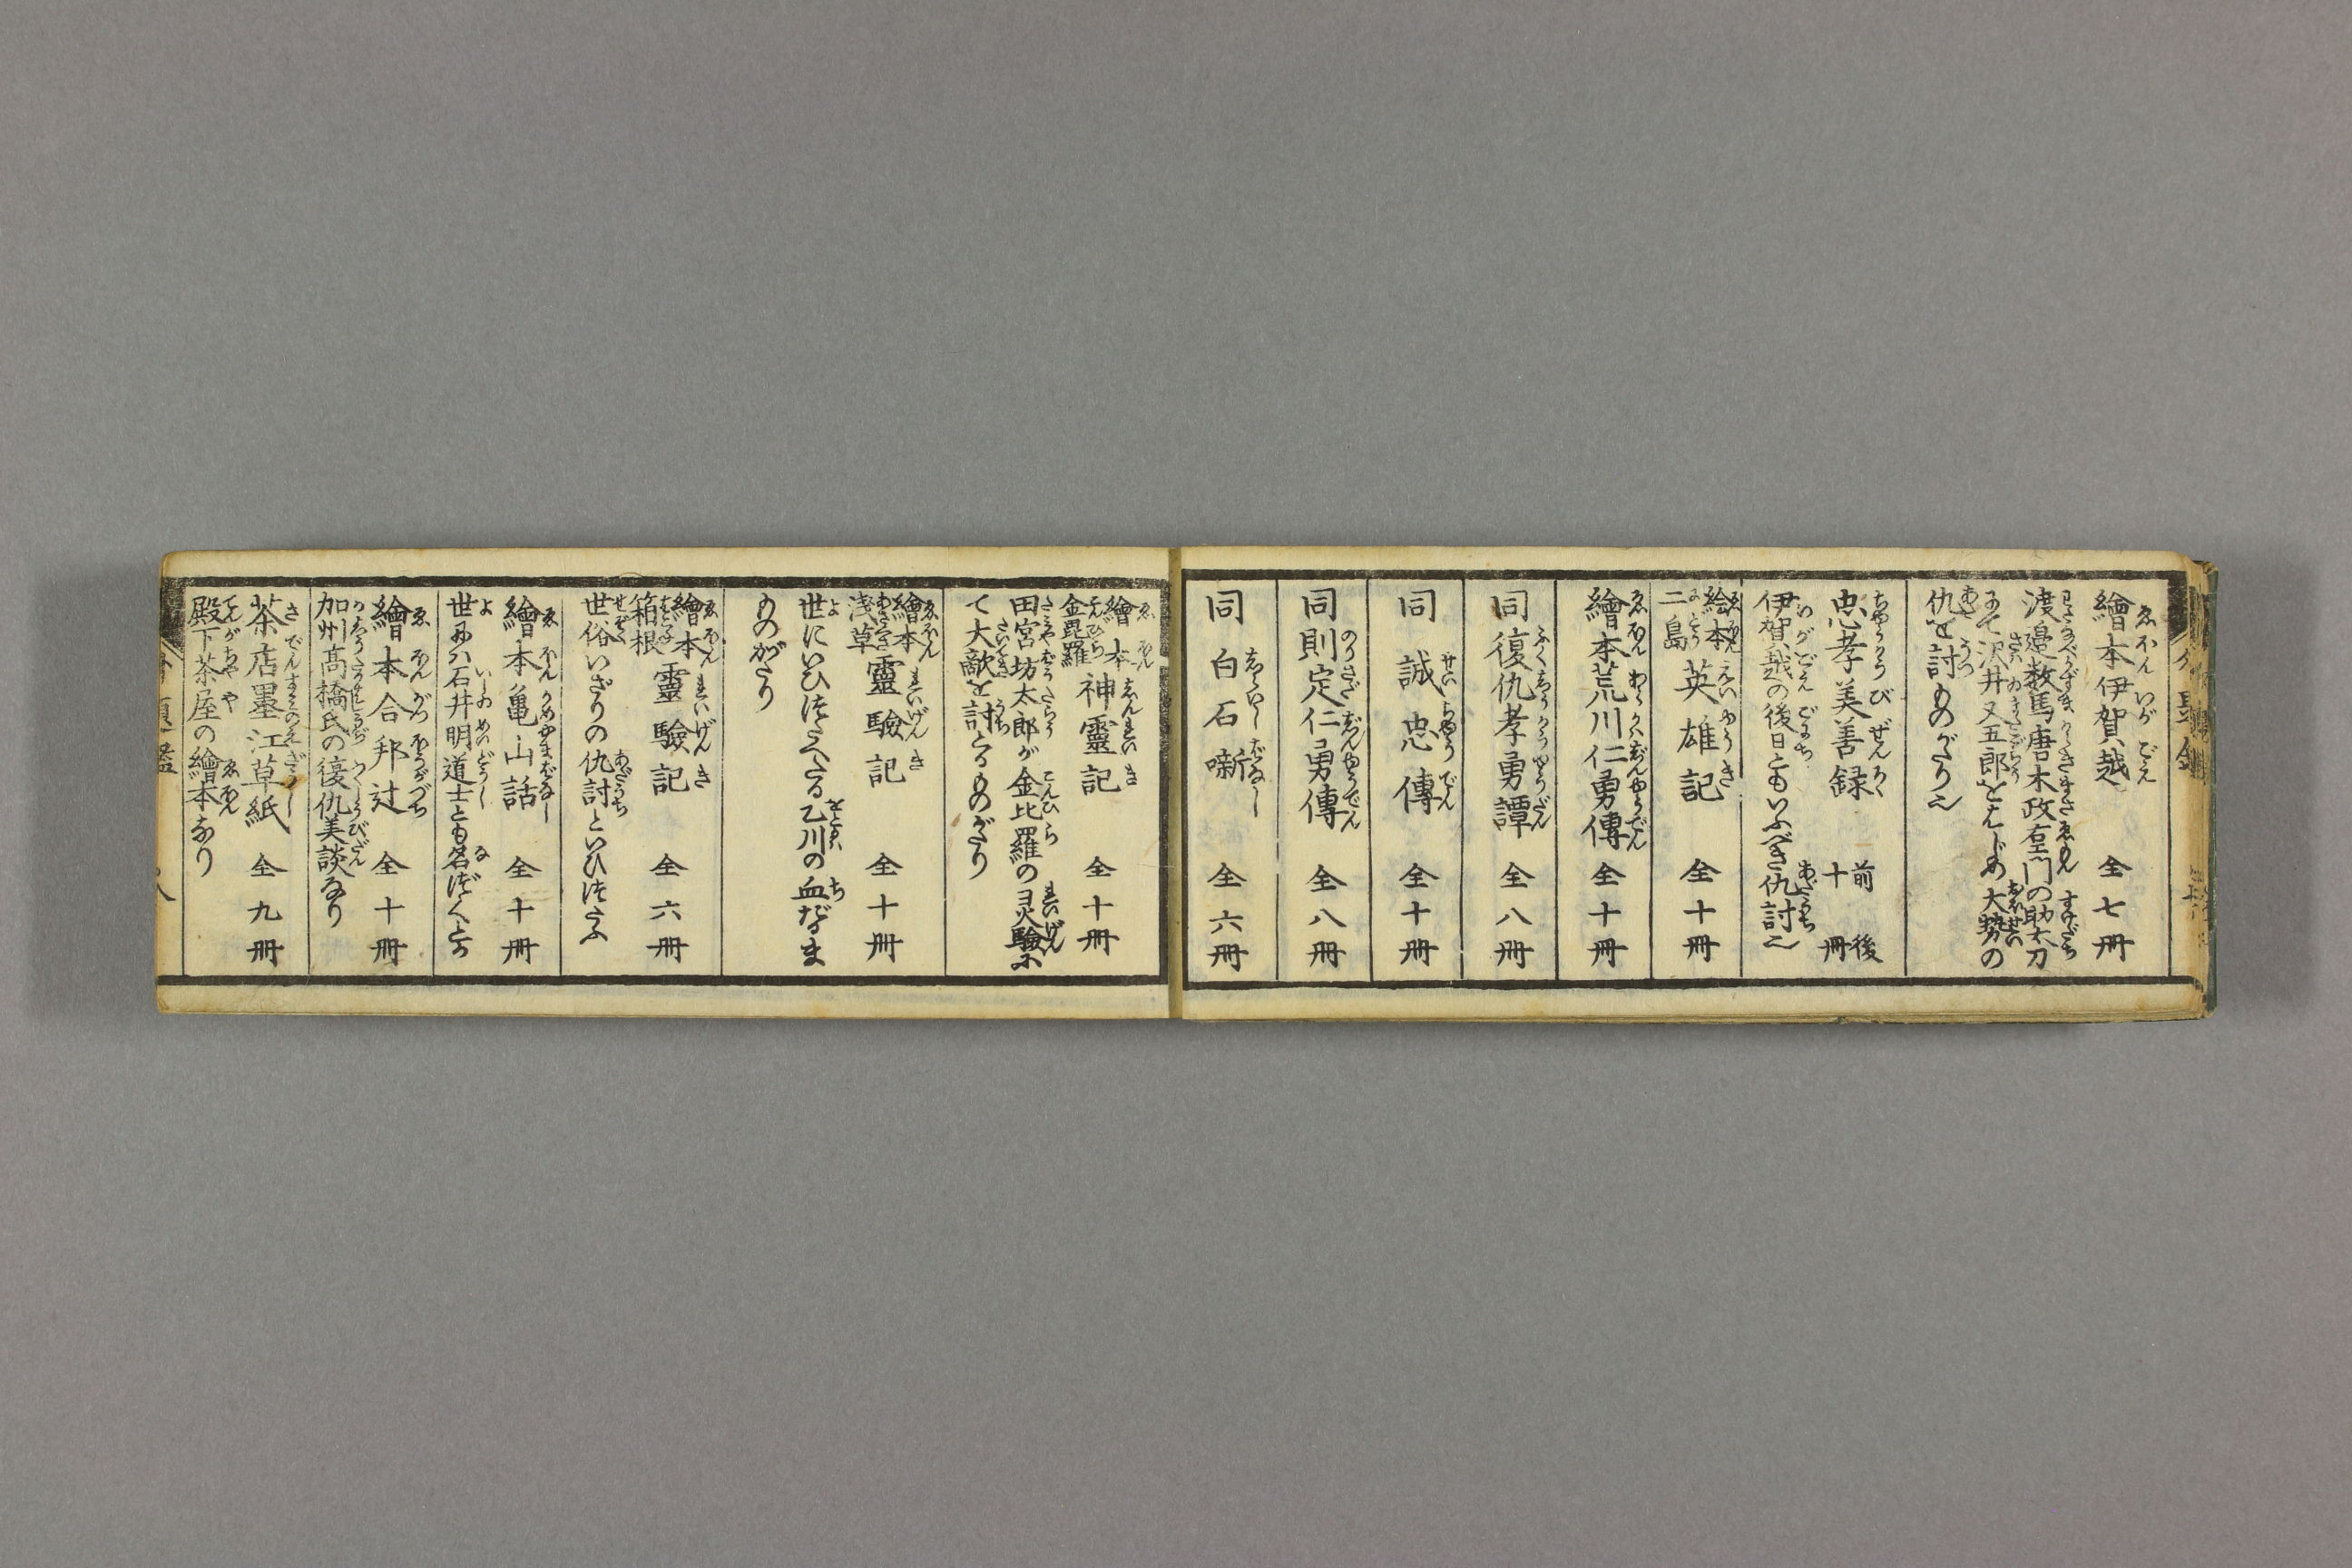 繪本伊賀越 全七冊
渡邉数馬唐木政右エ門の助太刀
にて沢井又五郎をはじめ大勢の
仇を討ものがたり也
忠孝美善録 前後十冊
伊賀越の後日ともいふべき仇討也
絵本二島英雄記 全十冊
繪本荒川仁勇傳 全十冊
同復仇孝勇譚 全八冊
同誠忠傳 全十冊
同則定仁勇傳 全八冊
同白石噺 全六冊
繪本金毘羅神靈記 全十冊
田宮坊太郎が金比羅の灵驗に
て大敵を討とるものがたり
繪本淺草靈驗記 全十冊
世にいひ伝へたる乙川の血だるま
ものがたり
繪本箱根靈驗記 全六冊
世俗いざりの仇討といひ伝ふ
繪本亀山話 全十冊
世にハ石井明道士とも名づくとか
繪本合邦辻 全十冊
加州髙橋氏の復仇美談なり
茶店墨江草紙 全九冊
殿下茶屋の繪本なり